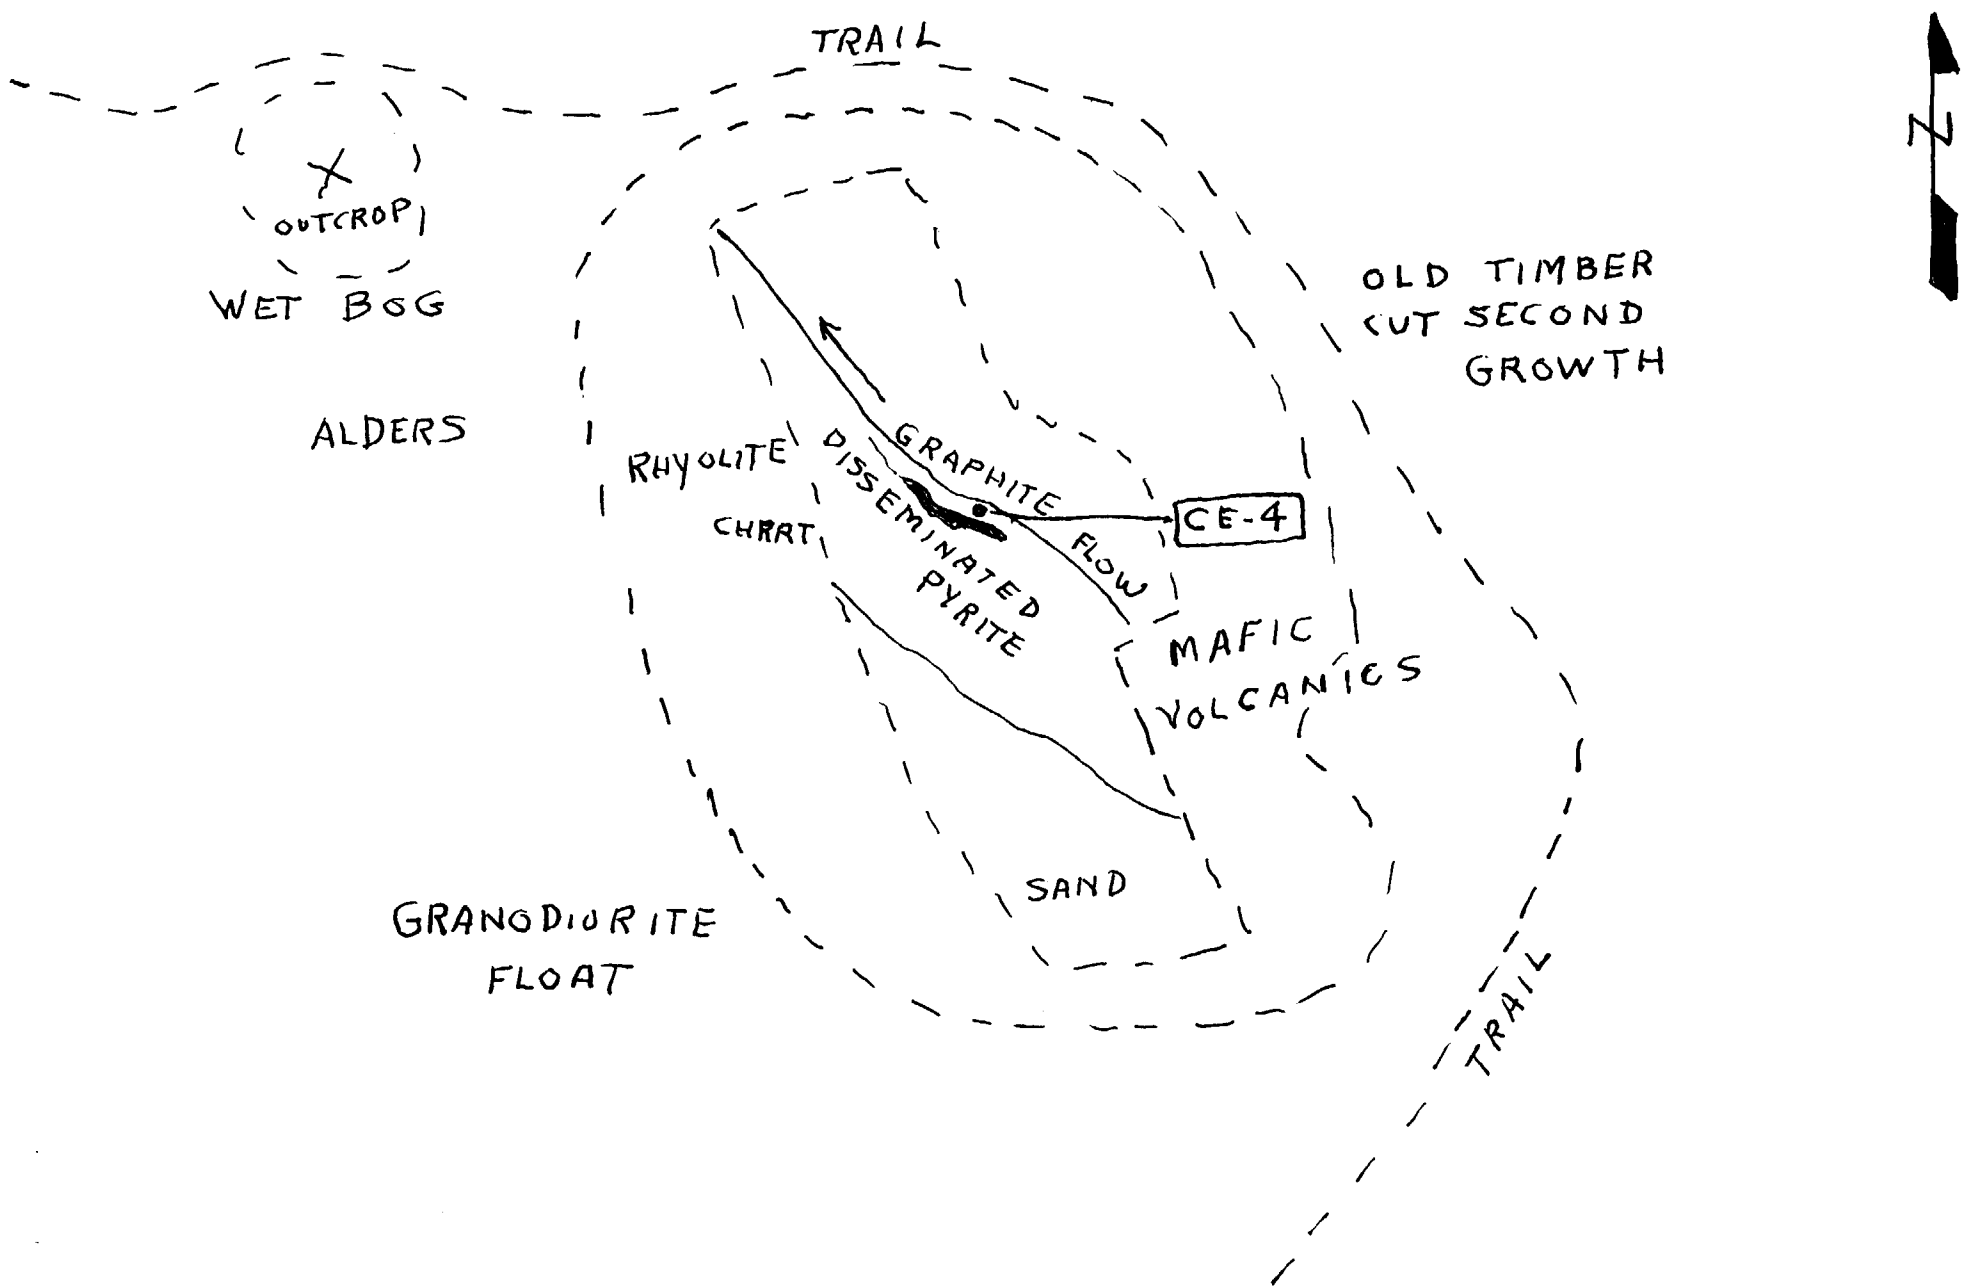 TRAIL
N
OUTCROP
WET BOG
OLD TIMBER
CUT SECOND
GROWTH
ALDERS
RHYOLITE
CHRRT
GRAPHITE FLOW
DISSEMINATED
PYRITE
CE-4
MAFIC
VOLCANICS
SAND
GRANODIORITE
FLOAT
TRAIL